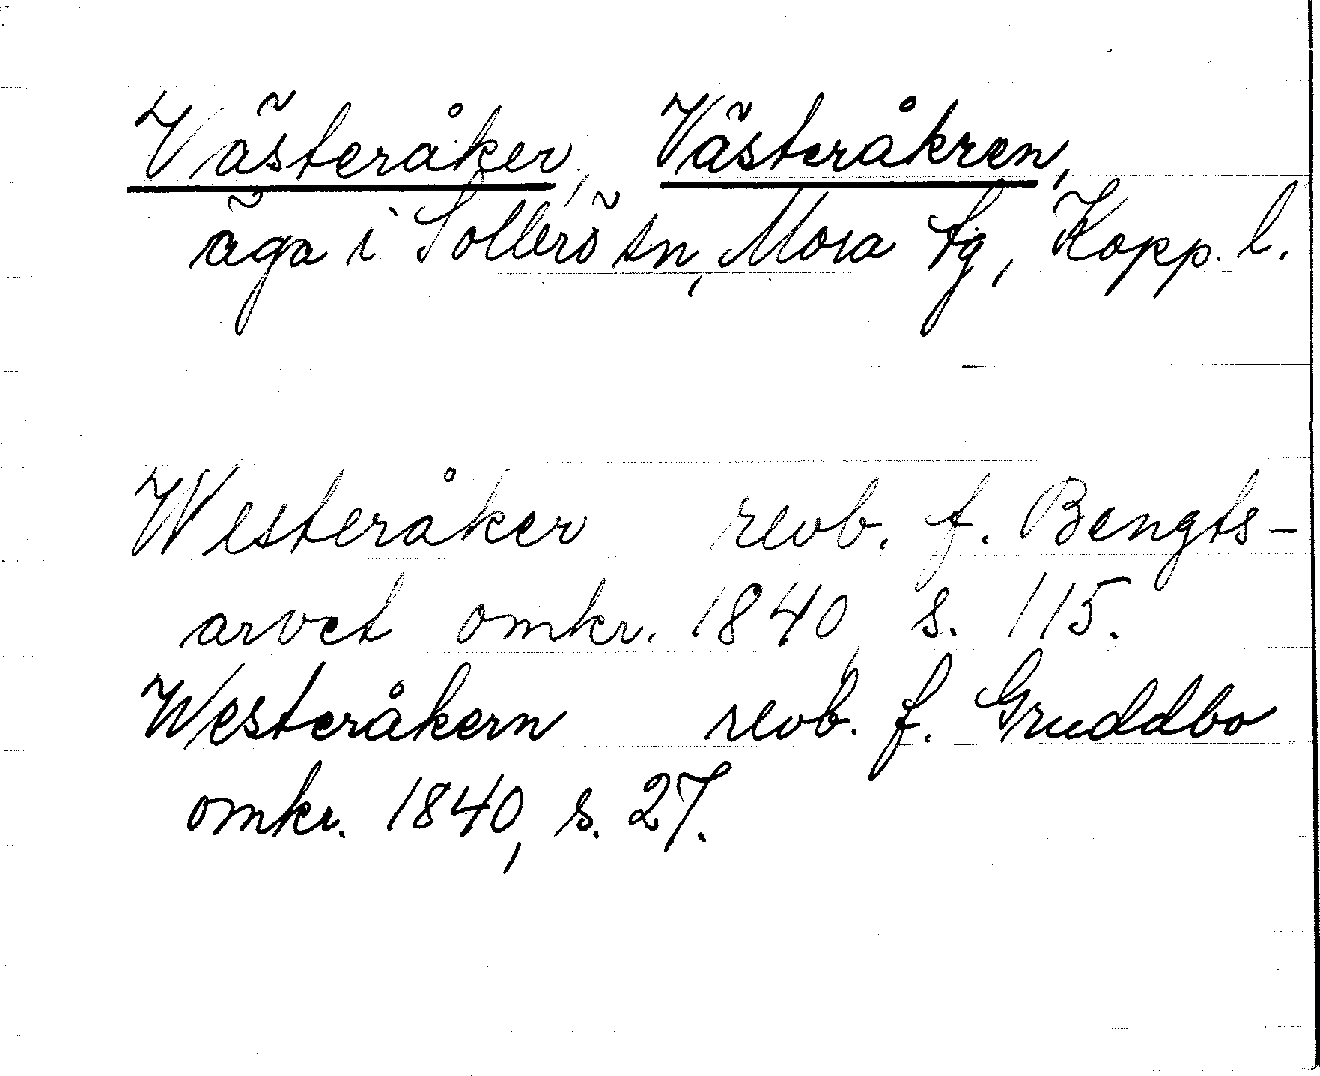 Västeråker, Västeråkren,
äga i Sollerö sn, Mora tg, Kopp. l.
Westeråker revb. f. Bengts-
arvet omkr. 1840, s. 115.
Westeråkern revb. f. Gruddbo
omkr. 1840, s. 27.